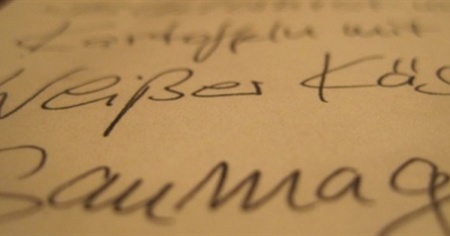 Kartoffeln mit
Weißer Käs
Saumag